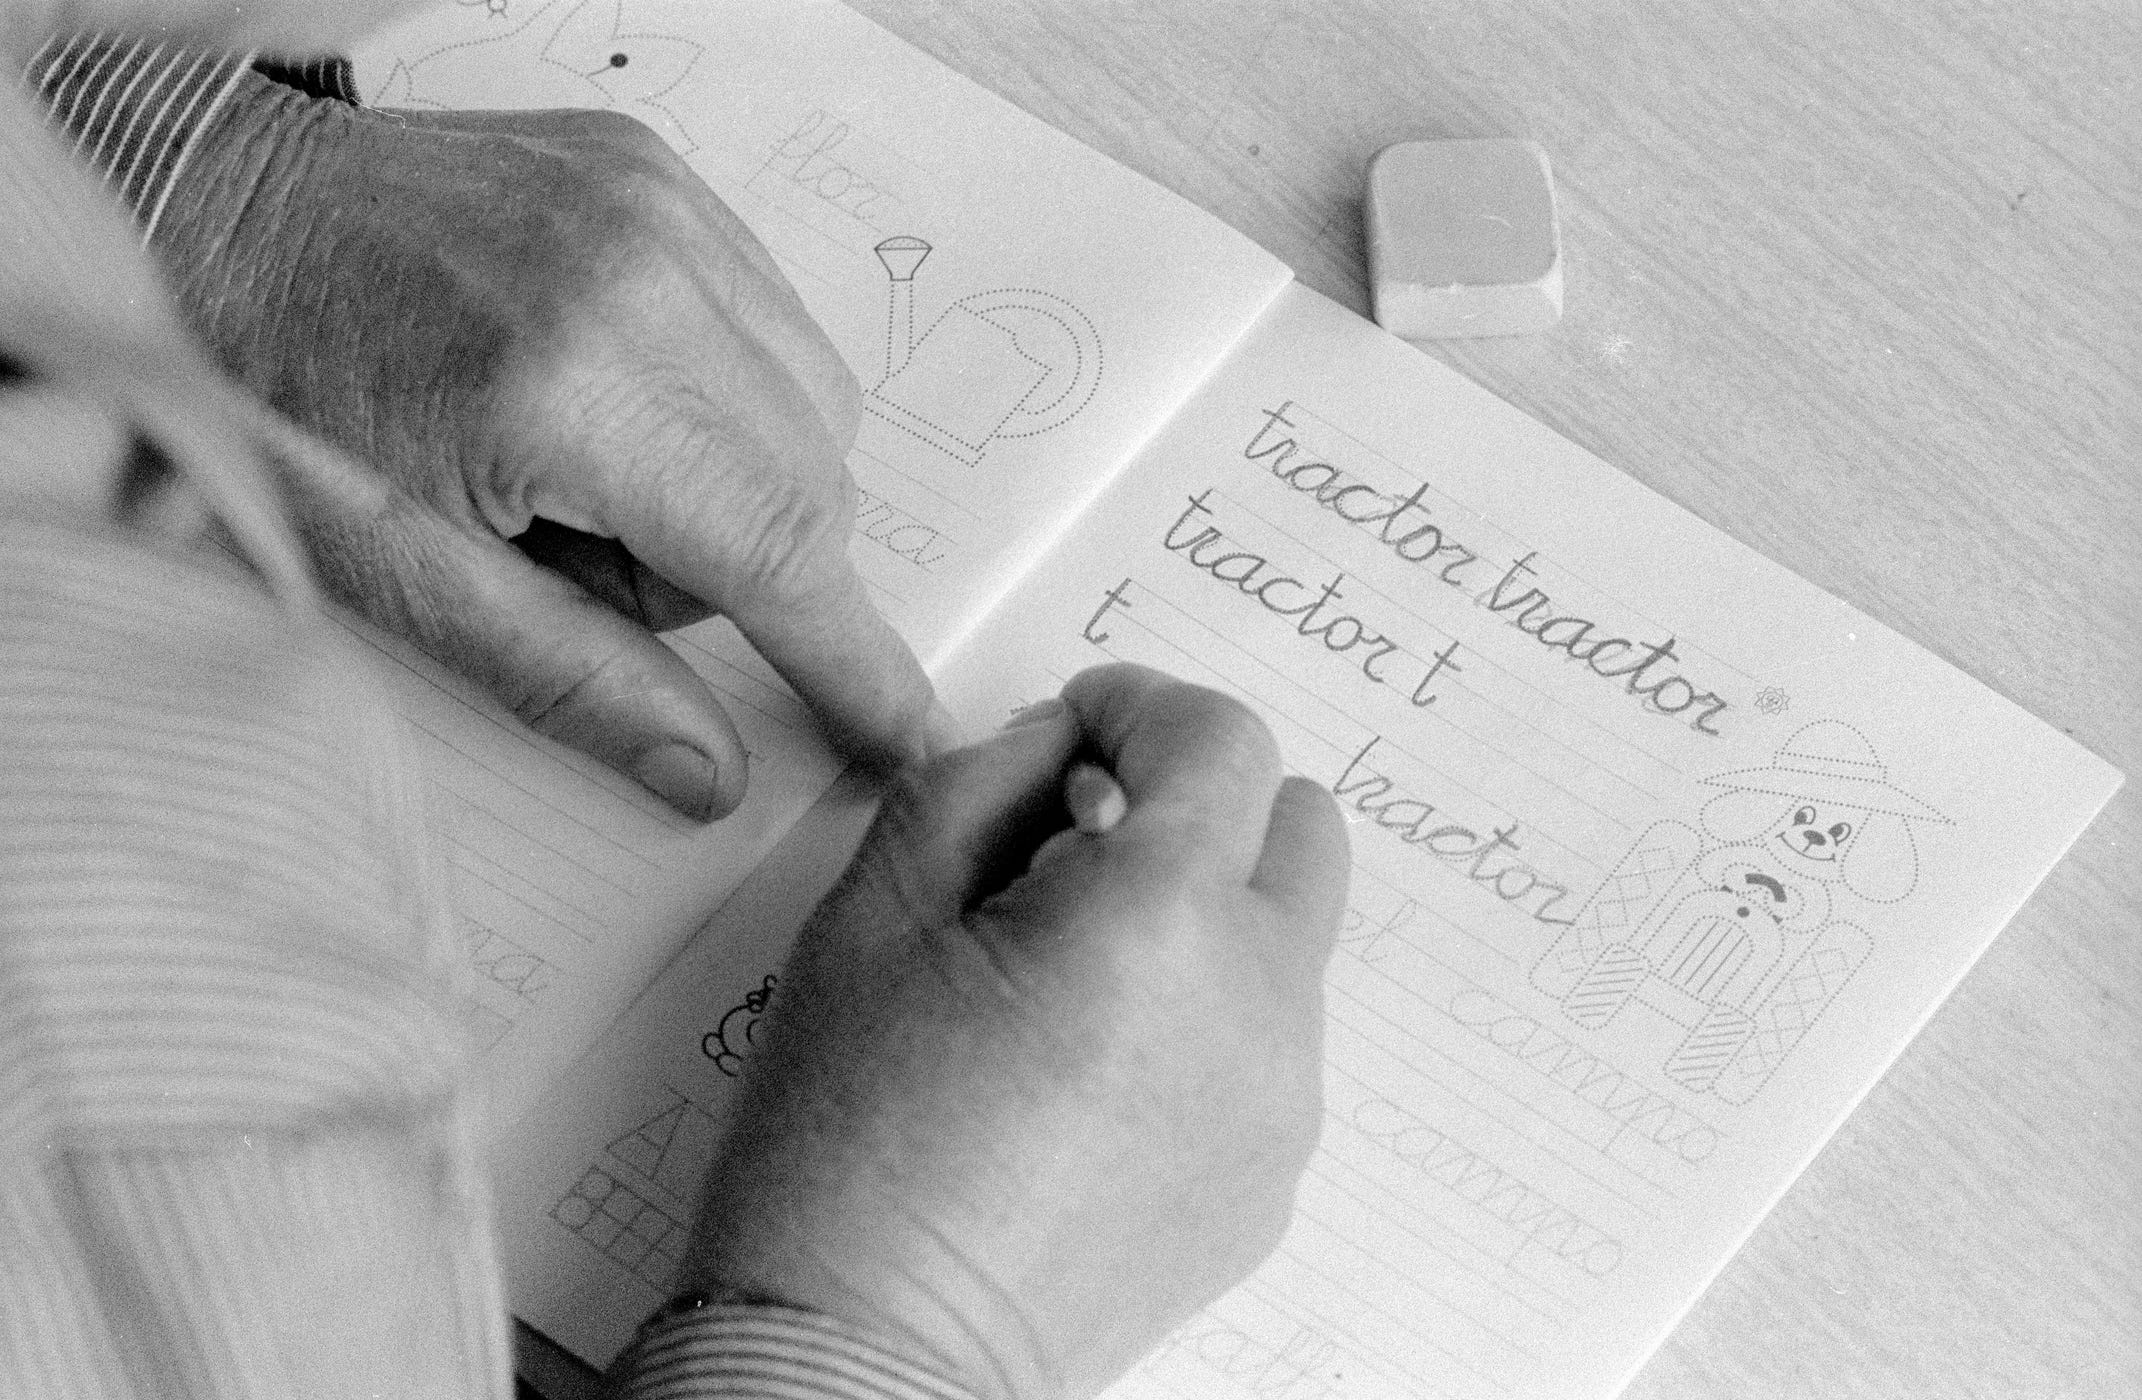 flor
tractor tractor
tractor t
t
tractor
campo
campo
A